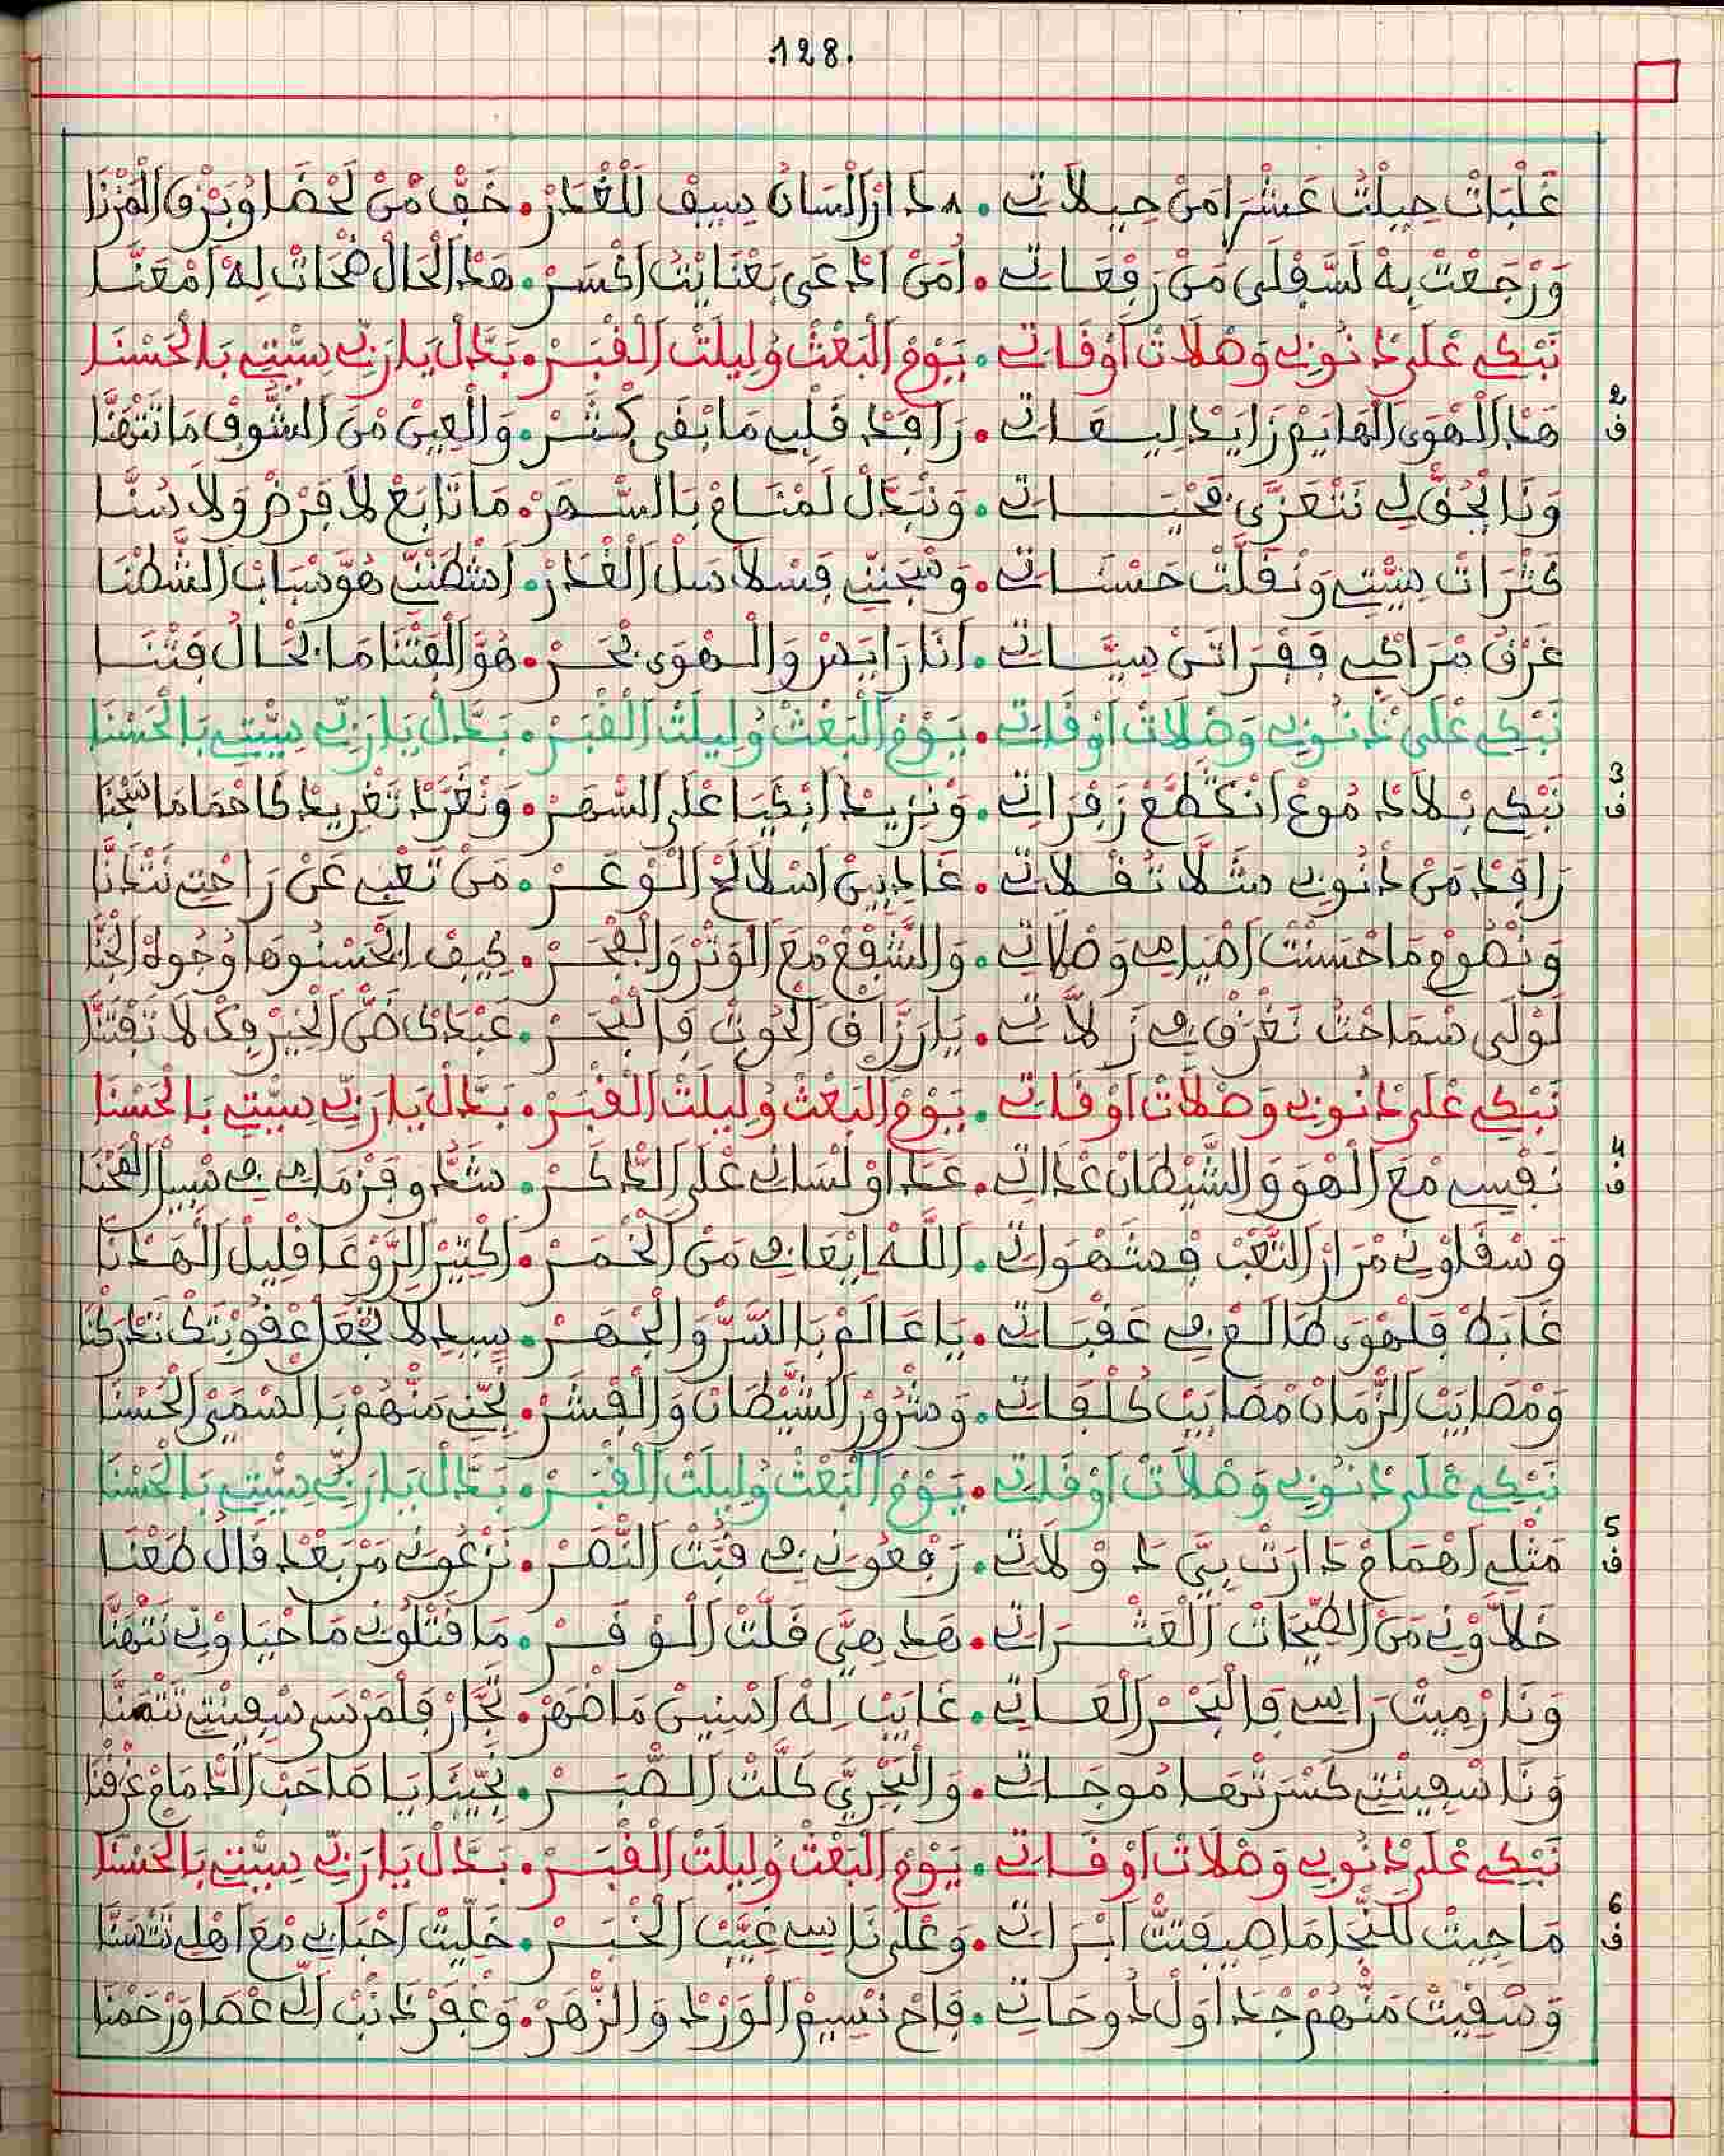 .128.
غَلْبَاتْ حِيلْتُ عَشْرَا مَنْ حِيلَاتِي • دَارْ الْسَانُ سِيفْ لَلْغْدَرْ • خَفّ مْنْ لَحْضَا وُبَرْقْ الْمَزْنَا
وَرْجَعْتْ بِهْ لَسَّفْلَى مَنْ رَفْعَاتِي • أُمَنْ ادْعَى بَعْنَايْتُ اخْسَرْ • هَذَ الْحَالْ ضْحَاتْ لِهْ امْعَنَّا
نَبْكِي عْلَى ذْنُوبِي وَصْلَاتْ اوْقَاتِي • يَوْمْ الْبَعْثْ وُلِيلَتْ الْقْبَرْ • بَدَّلْ يَا رَبِّي سِيّْتِي بَالْحَسْنَا
2
ف
هَدَ الْهْوَى الْهَايَمْ زَايَدْ لِيعَاتِي • رَاقَدْ قَلْبِي مَا بْقَى كْثَرْ • وَالْعِينْ مْنَ الشُّوقْ مَا تَتْهَنَّا
وَنَا بْحُقّْ لِي نَتْعَزَّى فَحْيَاتِي • وَنْبَدَّلْ لَمْنَامْ بَالسّْهَرْ • مَا تَابَعْ لَا فَرْضْ وَلَا سُنَّا
كَثْرَاتْ سِيّْتِي وَنْفَلْتْ حَسْنَاتِي • وَسْجَنِّي فَسْلَاسَلْ الْقْدَرْ • اشْطَنِّي هُوَّ سْبَابْ الشَّطْنَا
غَرْقُ مْرَاكْبِي فَفْرَاتَنْ سِيَّاتِي • أَنَا رَايَسْ وَالْهْوَى بْحَرْ • هُوَّ الْفَتْنَا مَا بْحَالُ فَتْنَا
نَبْكِي عْلَى ذْنُوبِي وَصْلَاتْ اوْقَاتِي • يَوْمْ الْبَعْثْ وُلِيلَتْ الْقْبَرْ • بَدَّلْ يَا رَبِّي سِيّْتِي بَالْحَسْنَا
3
ف
نَبْكِي بْلَا دْمُوعْ انْكَطَّعْ زَفْرَاتِي • وَنْزِيدْ ابْكْيَا عْلَى السّْهَرْ • وَنْغَرَّدْ تَغْرِيدْ كَا حْمَامَا شَجْنَا
رَاقَدْ مَنْ ذْنُوبِي مَثَّلَا تُفْلَاتِي • غَادِينْ اسْلَالَحْ الْوْعَرْ • مَنْ تَعْبِي عَنْ رَاحْتِي نَتْدَنَّا
وَنْصُومْ مَا حْسَنْتْ اصْيَامِي وَصْلَاتِي • وَالشَّفْعْ مْعَ الْوَتْرْ وَالْفْجَرْ • كِيفْ ايْحَسْنُوهَا وْجُوهْ الْجَنَّا
لَوْلَى سْمَاحْتُ نَغْرَقْ فِي زَلَّاتِي • يَا رَزَّاقْ الْحُوتْ فَالْبْحَرْ • عَبْدَكْ ضَنّْ الْخِيرْ فِكْ لَا تَفْتَنَّا
نَبْكِي عْلَى ذْنُوبِي وَصْلَاتْ اوْقَاتِي • يَوْمْ الْبَعْثْ وُلِيلَتْ الْقْبَرْ • بَدَّلْ يَا رَبِّي سِيّْتِي بَالْحَسْنَا
4
ف
نَفْسِي مْعَ الْهْوَ وَالشَّيْطَانْ عْدَاتِي • عَدَاوْ لْسَانِي عْلَى الذّْكَرْ • شَدُّو فَزْمَامِي فِي مْسِيرْ الْمَحْنَا
وَسْقَاوْنِي مْرَارْ التَّعْبْ فَشَهْوَاتِي • اللَّهْ ايْعَافِي مَنْ الْخْمَرْ • اكْثِيرْ الرَّوْعَا قْلِيلْ الْهَدْنَا
غَابَطْ فَلْهْوَى طَالَعْ فِي عَقْبَاتِي • يَا عَالَمْ بَالسَّرّْ وَالْجْهَرْ • سِيدِي لَا تَجْعَلْ عْقُوبْتَكْ تَدْرَكْنَا
وَمْصَايَبْ الزّْمَانْ مْصَايَبْ كُلْفَاتِي • وَشْرُورْ الشَّيْطَانْ وَالْفْشَرْ • نَجِّنِي مَنْهُمْ بَالسْمَيْ الْحُسْنَا
نَبْكِي عْلَى ذْنُوبِي وَصْلَاتْ اوْقَاتِي • يَوْمْ الْبَعْثْ وُلِيلَتْ الْقْبَرْ • بَدَّلْ يَا رَبِّي سِيّْتِي بَالْحَسْنَا
5
ف
مَثْلِي اهْمَامْ دَارَتْ بِيَّ دَوْلَاتِي • رَفْعُونِي فِي قُبَّتْ النّْصَرْ • نَزْعُونِي مَنْ بَعْدْ قَالُ طَعْنَا
خَلَّاوْنِي مَنْ الطِّيحَاتْ الْعَثْرَاتِي • هَدِ هِيَّ قَلَّتْ الْوْفَرْ • مَا قَتْلُونِي مَا حْيَاوْنِي نَتْهَنَّا
وَنَا رْمِيتْ رَاسِي فَالْبَحْرْ الْعَاتِي • غَايَبْ لِهْ اسْنِينْ مَا ضْهَرْ • تَجَّارْ فَلْمَرْسَى سْفِينْتِي تَتْمَنَّا
وَنَا سْفِينْتِي كَسْرَتْهَا مُوجَاتِي • وَالْبَحْرِيَّ كَلَّتْ الصّْبَرْ • نَجِّينَا يَا صَاحَبْ الدّْمَامْ غْرَقْنَا
نَبْكِي عْلَى ذْنُوبِي وَصْلَاتْ اوْقَاتِي • يَوْمْ الْبَعْثْ وُلِيلَتْ الْقْبَرْ • بَدَّلْ يَا رَبِّي سِيّْتِي بَالْحَسْنَا
6
ف
مَا جِيتْ لَلنّْجَا مَا صِيفَتّْ ابْرَاتِي • وَعْلَى نَاسِي غَيَّبْ الْخْبَرْ • خَلِّيتْ احْبَابِي مْعَ اهْلِي تَتْسَنَّا
وَسْقِيتْ مَنْهُمْ جْدَاوَلْ دُوحَاتِي • فَاحْ نْسِيمْ الْوَرْدْ وَالزّْهَرْ • وَغْفَرْ ذَنْبْ الِّي عْصَا وَرْحَمْنَا